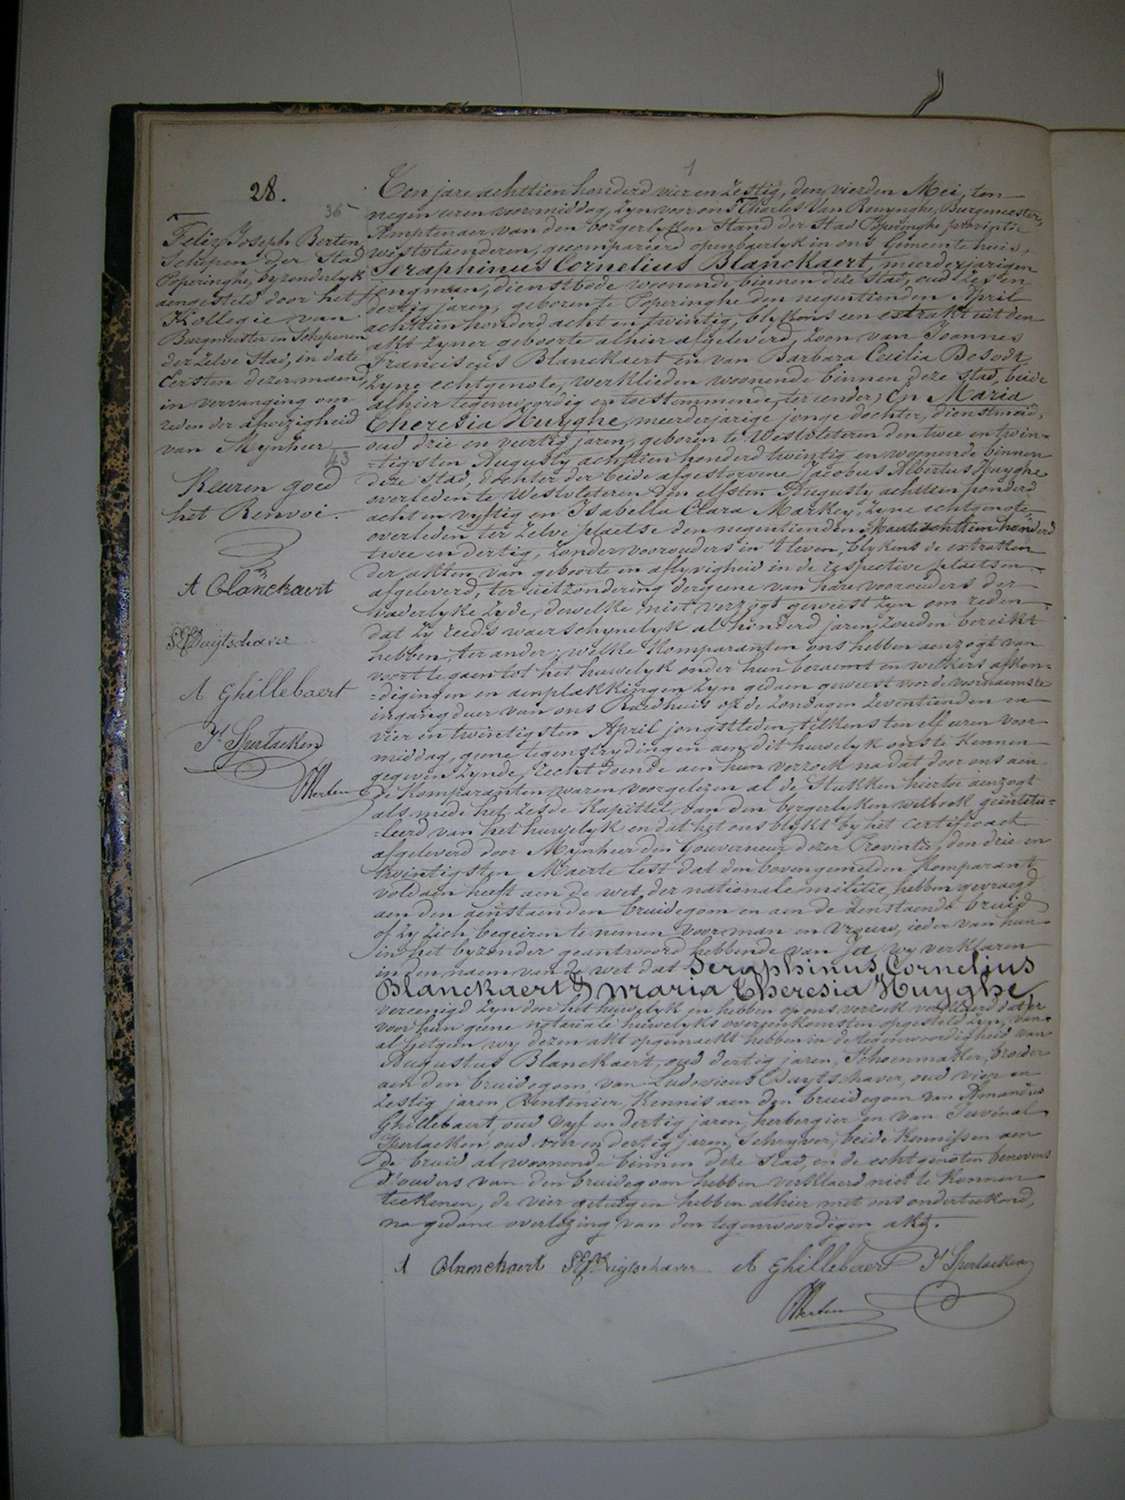 28.
36
Felix Joseph Berten
Schepen der Stad
Poperinghe, byzonderlyk
aengesteld door het
Kollegie van
Burgmeester en Schepenen
der zelve Stad, in date
eersten dezer maend
in vervanging om
reden der afwezigheid
van Mynheer
43
Keuren goed
het Renvoi.
A Blanckaert
Duytschaver
A Ghillebaert
Sperlaeken
Berten
1
Ten jare achttien honderd vier en zestig, den vierden Mei, ten
negen uren voormiddag, zyn voor ons Charles Van Renynghe, Burgmeester,
Amptenaer van den borgerlyken Stand der Stad Poperinghe provintie
Westvlaenderen, gecompareerd openbaerlyk in ons Gemeentehuis,
Seraphinus Cornelius Blanckaert, meerderjarigen
jongman, dienstbode woonende binnen deze stad, oud zes en
dertig jaren, geboren te Poperinghe den negentienden April
achttien honderd acht en twintig, blykens een extrakt uit den
akt zyner geboorte alhier afgeleverd, zoon van Joannes
Franciscus Blanckaert en van Barbara Cecilia Desodt,
zyne echtgenote, werklieden woonende binnen deze stad, beide
alhier tegenwoordig en toestemmende, ter eender; En Maria
Theresia Huyghe, meerderjarige jonge dochter, dienstmeid,
oud drie en veertig jaren, geboren te Westvleteren den twee en twin-
-tigsten Augusty achttien honderd twintig en woonende binnen
deze stad, dochter der beide afgestorvene Jacobus Albertus Huyghe
overleden te Westvleteren den elfsten Augusty achttien honderd
acht en vyftig en Isabella Clara Markey, zyne echtgenote
overleden ter zelve plaetse den negentienden Maert achttien honderd
twee en dertig, zonder voorouders in 't leven, blykens de extrakten
der akten van geboorte en aflyvigheid in de respective plaetsen
afgeleverd, ter uitzondering dergene van hare voorouders der
vaderlyke zyde, dewelke niet verzogt geweest zyn om reden
dat zy reeds waerschynelyk al honderd jaren zouden bereikt
hebben, ter ander; welke Komparanten ons hebben aenzogt van
voort te gaen tot het huwelyk onder hun beraemt en welkers afkon-
-digingen en aenplakkingen zyn gedaen geweest voor de voornaemste
ingangdeur van ons Raedhuis op de zondagen zeventienden en
vier en twintigsten April jongstleden, telkens ten elf uren voor
middag, geene tegenstrydingen aen dit huwelyk ons te kennen
gegeven zynde, recht doende aen hun verzoek na dat door ons aen
de Komparanten waren voorgelezen al de Stukken hiertoe aenzogt
als mede het zesde Kapittel van den borgerlyken wetboek geintitu-
-leerd van het huwelyk en dat het ons blykt by het certificaet
afgeleverd door Mynheer den Gouverneur dezer Provintie, den drie en
twintigsten Maerte lest dat den bovengemelden Komparant
voldaen heeft aen de wet der nationale militie, hebben gevraegd
aen den aenstaenden bruidegom en aen de aenstaende bruid
of zy zich begeiren te nemen voor man en vrouw, ieder van hun
in het byzonder geantwoord hebbende van ja, wy verklaren
in den naem van de wet dat Seraphinus Cornelius
Blanckaert & Maria Theresia Huyghe
vereenigd zyn door het huwelyk en hebben op ons verzoek verklaerd dat er
voor hun geene notariale huwelyks overeenkomsten opgesteld zyn, van
al hetgeen wy dezen akt opgemaekt hebben in de tegenwoordigheid van
Augustus Blanckaert, oud dertig jaren, Schoenmaker, broeder
aen den bruidegom, van Ludovicus Duytschaver, oud vier en
zestig jaren Rentenier, Kennis aen den bruidegom van Amandus
Ghillebaert oud vyf en dertig jaren, herbergier en van Juvinal
Sperlaeken oud vier en dertig jaren, Schryver, beide Kennissen aen
de bruid al woonende binnen deze stad, en de echtgenoten benevens
d'ouders van den bruidegom hebben verklaerd niet te Kennen
teekenen, de vier getuigen hebben alhier met ons onderteekend,
na gedane overlezing van den tegenwoordigen akt.
A Blanckaert Duytschaver A Ghillebaert Sperlaeken
Berten